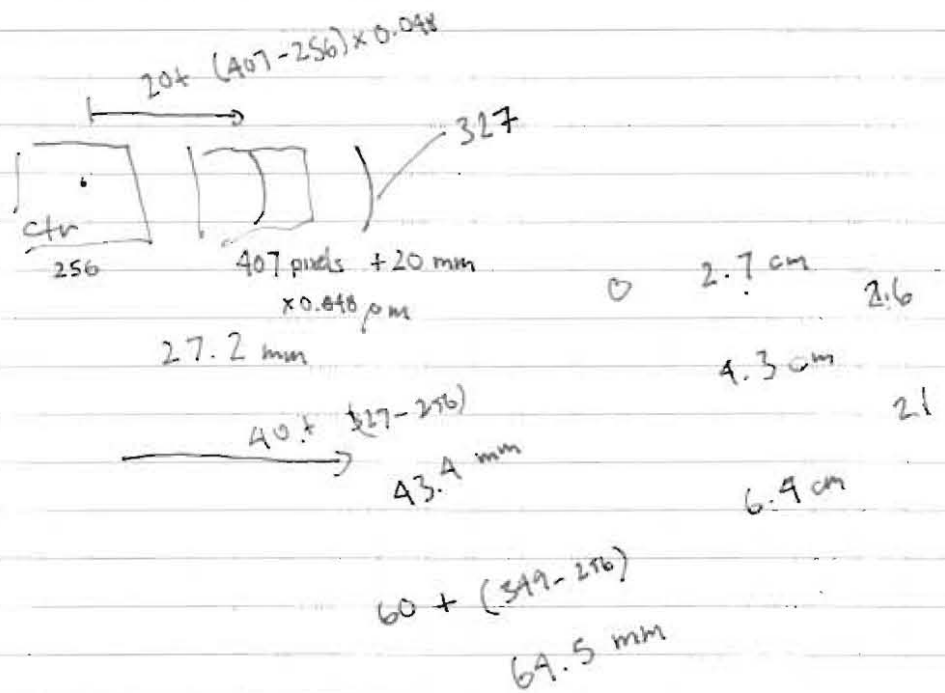 20+ (407-256)×0.048
327
ctr
256
407 pixels +20 mm
×0.048 µm
27.2 mm
0 2.7 cm
2.6
4.3 cm
21
40+ (327-256)
43.4 mm
6.4 cm
60 + (349-256)
64.5 mm